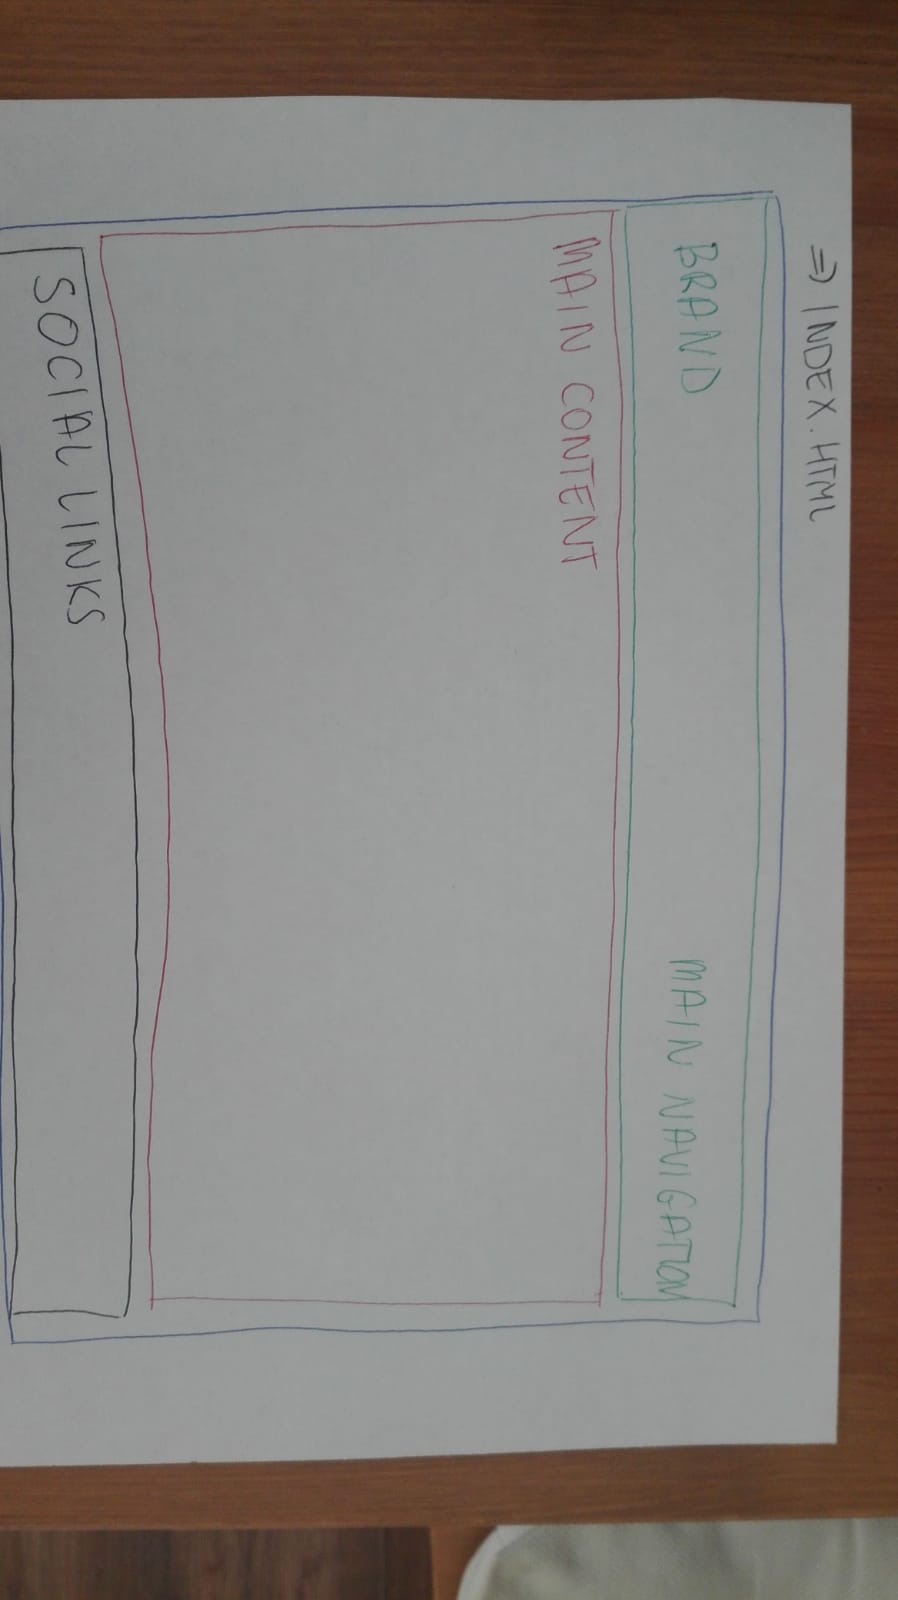 => INDEX.HTML
BRAND
MAIN NAVIGATION
MAIN CONTENT
SOCIAL LINKS